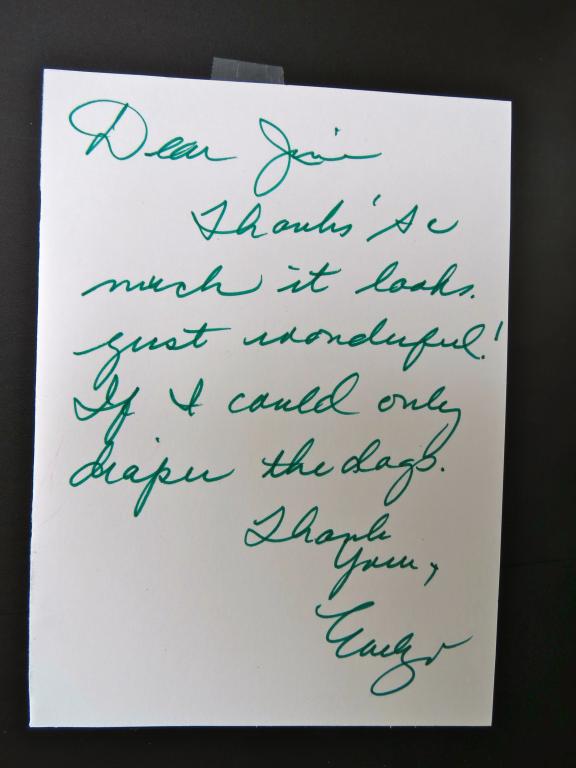 Dear Jim
Thanks so
much it looks
just wonderful!
If I could only
diaper the dogs.
Thank
You,